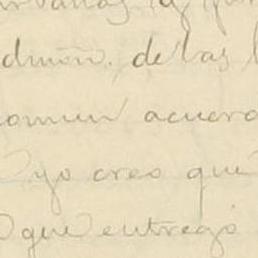 admón. de las
comun acuerd
yo creo que
que entregó